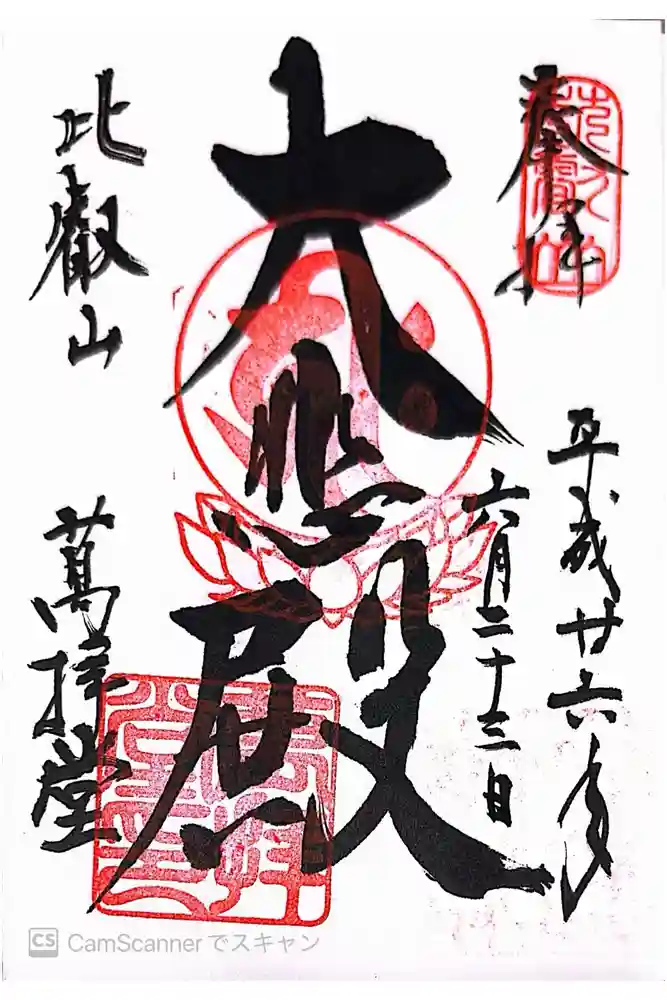 奉拝
平成廿六年
六月二十三日
大悲殿
比叡山
萬拝堂
CS CamScanner でスキャン